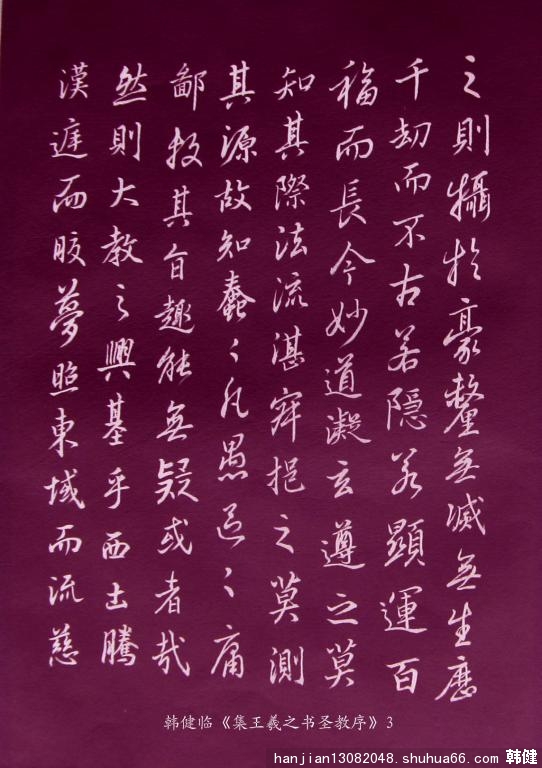 之則攝於豪釐無滅無生歷
千劫而不古若隱若顯運百
福而長今妙道凝玄遵之莫
知其際法流湛寂挹之莫測
其源故知蠢〻凡愚區〻庸
鄙投其旨趣能無疑或者哉
然則大教之興基乎西土騰
漢庭而皎夢照東域而流慈
韩健临《集王羲之书圣教序》3
hanjian13082048.shuhua66.com 韩健